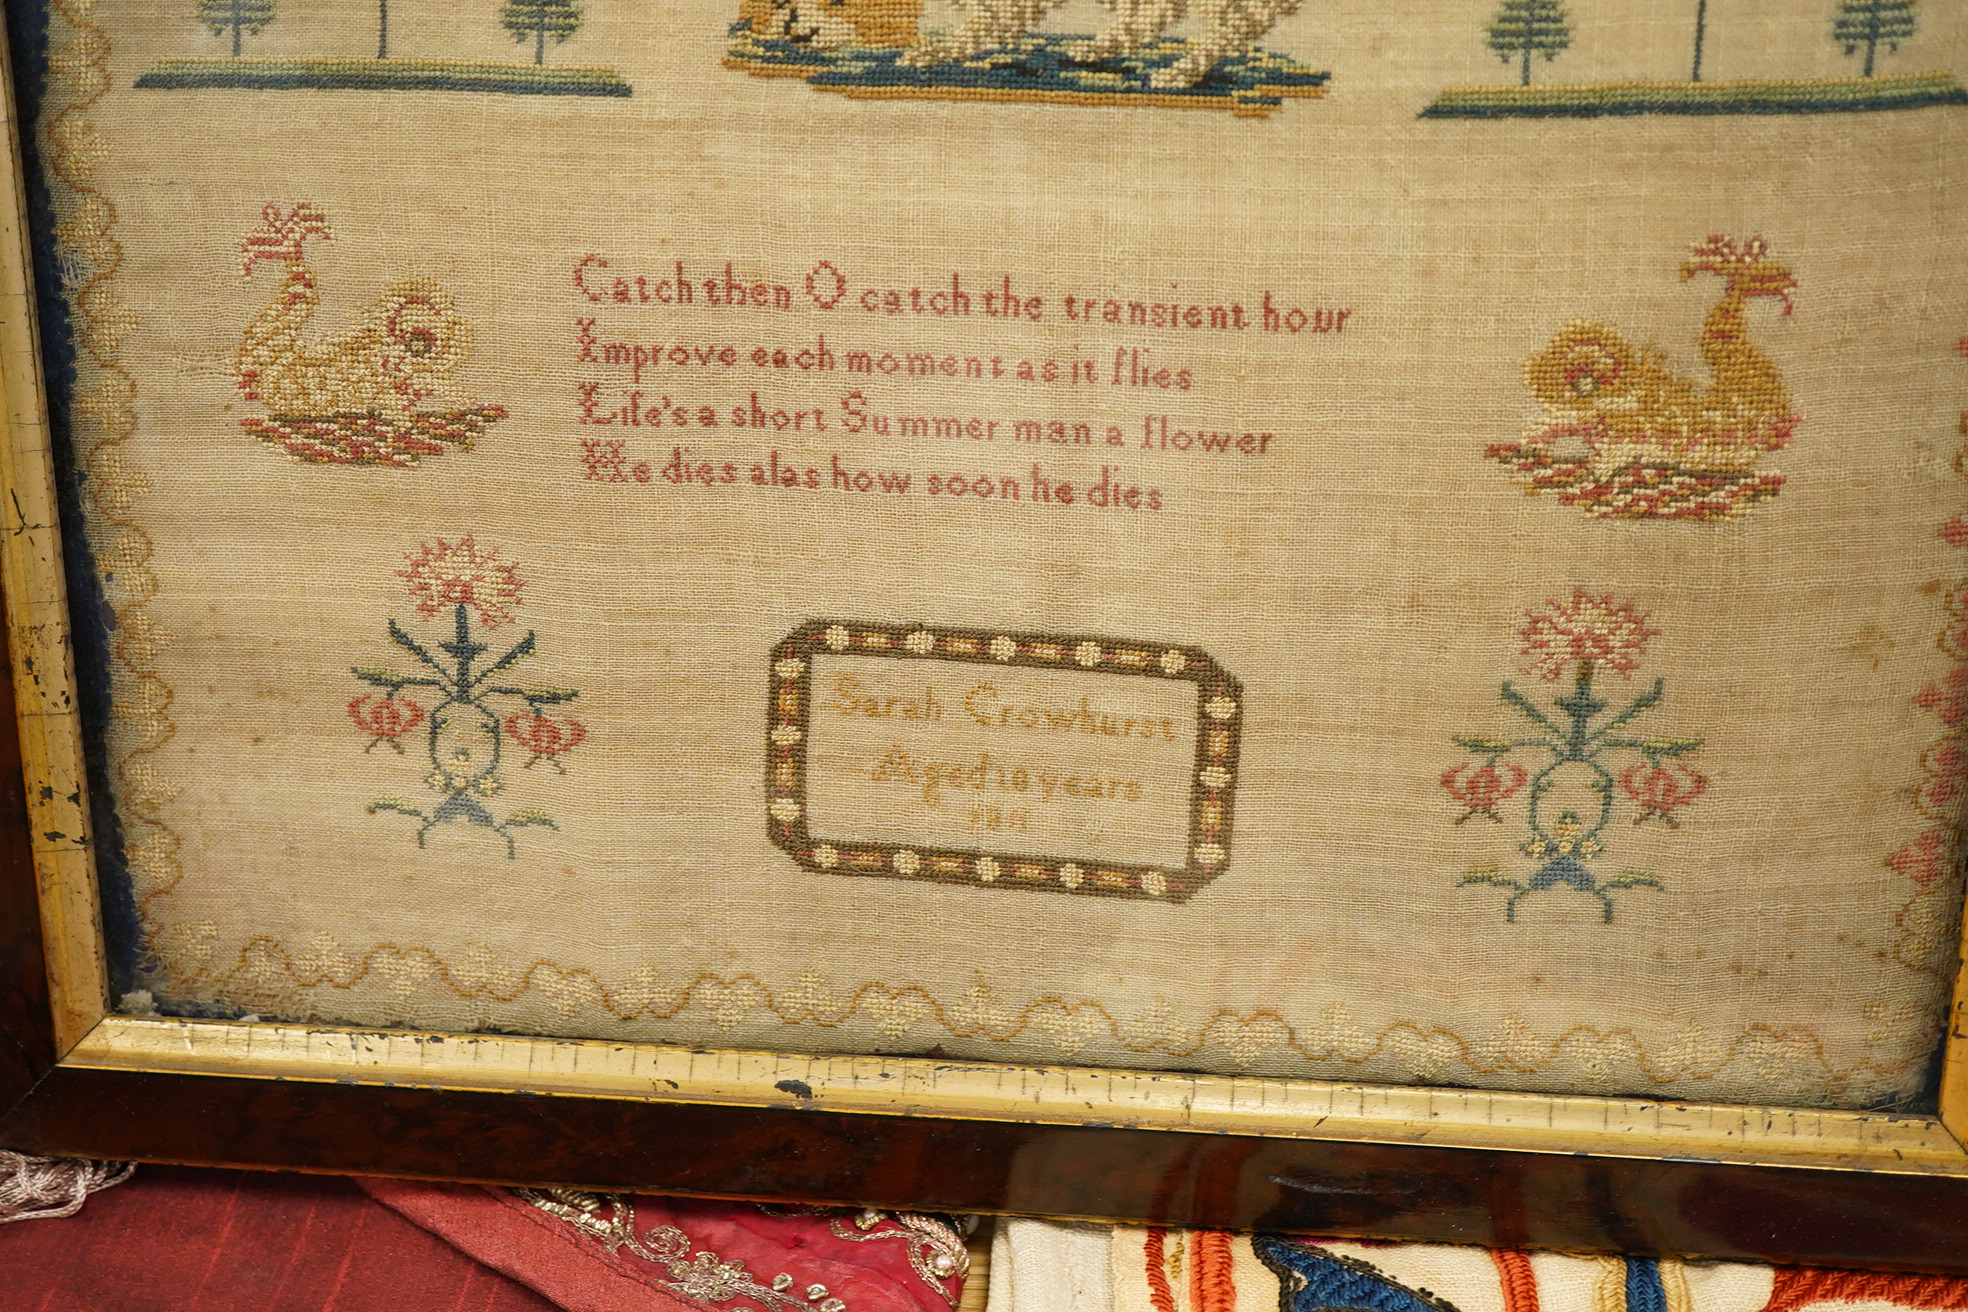 Catch then O catch the transient hour
Improve each moment as it flies
Life's a short Summer man a flower
He dies alas how soon he dies
Sarah Crowhurst
Aged 10 years